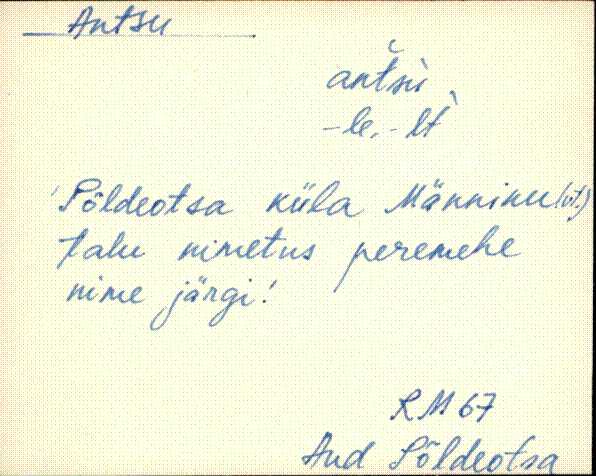 Antsu
antsu
-le, -lt
'Põldeotsa küla Männiku (vt.)
talu nimetus peremehe
nime järgi!
RM 67
And Põldeotsa